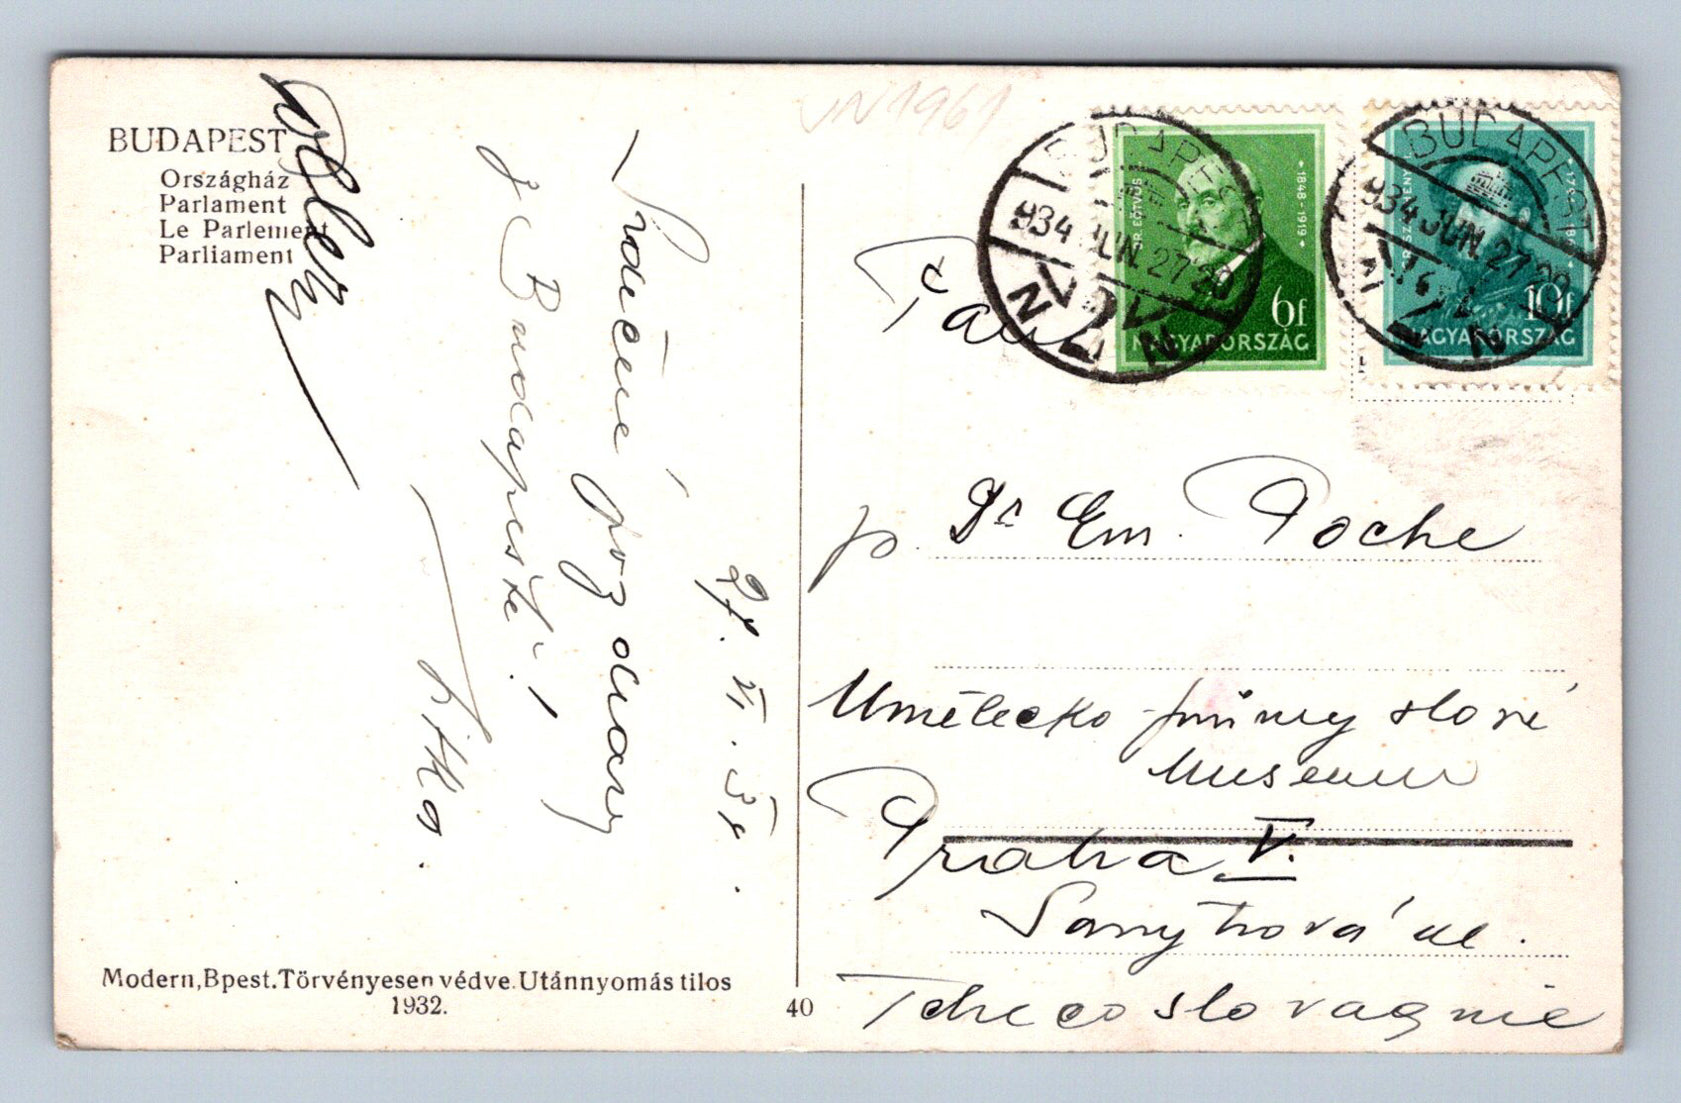 BUDAPEST
Országház
Parlament
Le Parlement
Parliament
27. VI. 34.
Srdečné pozdravy
z Budapešti!
Jitka.
Modern, Bpest. Törvényesen védve. Utánnyomás tilos
1932.
40
UN1961
BUDAPEST
934 JUN. 27 20
DR. EÖTVÖS
1848-1919
6f
MAGYARORSZÁG
BUDAPEST
934 JUN. 27 20
10f
MAGYARORSZÁG
Pan
p. Dr Em. Poche
Umělecko průmyslové
Museum
Praha V.
Sanytrová ul.
Tchecoslovaquie